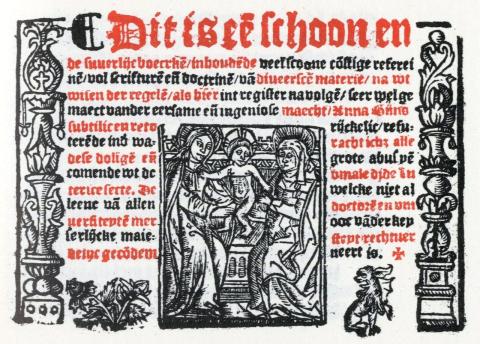 Dit is eē schoon en
de suuerlijc boecxkē/ inhoudēde veel scoone cōstige referei
nē/ vol scrifturē eñ doctrinē/ vā diueerscē materiē/ na wt
wisen der regelē/ als hier int register na volgē/ seer wel ge
maect vander eersame eñ ingeniose maecht/ Anna Bijns
subtilic eñ reto rijckelic/ refu/
terēde ind wa racht ichz alle
dese doligē eñ grote abusē
comende wt de
tersce secte. De welcke niet al
leene van allen doctorē en vni
uersiteytē mer ooc vāder key
serlijcke maie/ steyt/ rechtuer
delijc gecōdem neert is. ✠